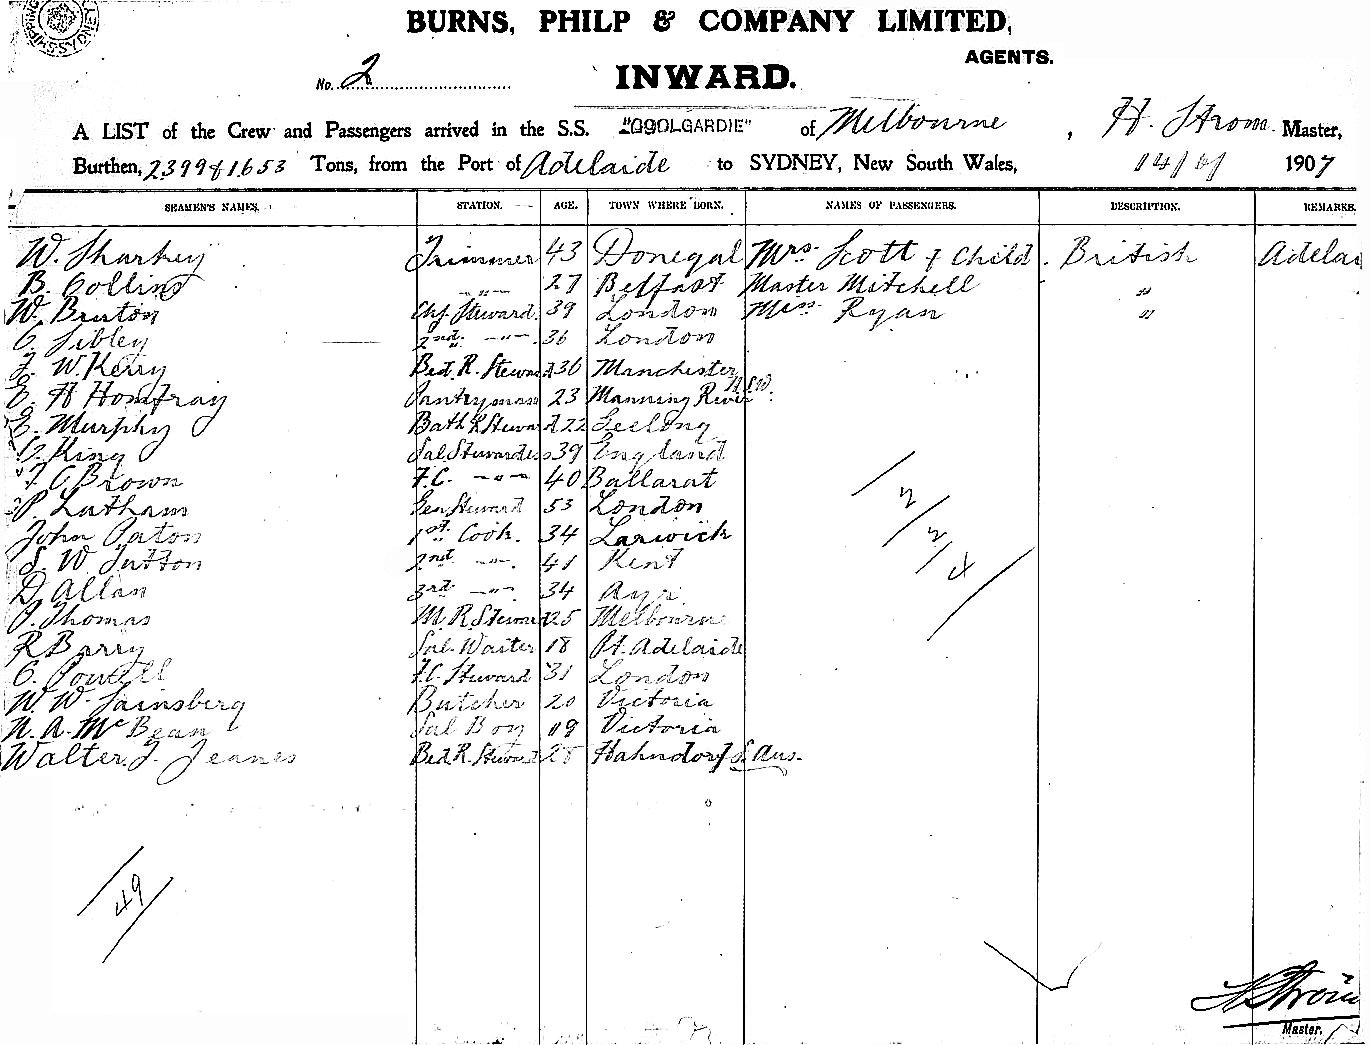 SHIPPING
SYDNEY
BURNS, PHILP & COMPANY LIMITED,
AGENTS.
No. 2
INWARD.
A LIST of the Crew and Passengers arrived in the S.S. "COOLGARDIE" of Melbourne, H. Strom Master,
Burthen, 2399 & 1653 Tons, from the Port of Adelaide to SYDNEY, New South Wales, 1907
SEAMEN'S NAMES. STATION. AGE. TOWN WHERE BORN. NAMES OF PASSENGERS. DESCRIPTION. REMARKS.
W. Sharkey Trimmer 43 Donegal Mrs. Scott & Child. British Adelai
B. Collins " 27 Belfast Master Mitchell "
W. Bruton Chf Steward. 39 London Miss Ryan "
C. Sibley 2nd. " 36 London
J. W. Kerry Bed. R. Steward 36 Manchester
E. H Homfray Pantryman 23 Manning River N.S.W.
E. Murphy Bath R Steward 22 Geelong
King Sal. Stewardess 39 England
F. C. Brown F.C. " 40 Ballarat
P. Latham Gen Steward 53 London
John Paton 1st Cook. 34 Larwick
S. W Tutton 2nd " 41 Kent
D. Allan 3rd " 34 Ayr.
J. Thomas M. R. Steward 25 Melbourne
R Barry Sal. Waiter 18 Pt. Adelaide
C. Powell F.C. Steward 31 London
W. W. Sainsberg Butcher 20 Victoria
N. A. McBean Sal Boy 19 Victoria
Walter. J. Jeanes Bed. R. Steward 28 Hahndorf S. Aus.
2/2/4
49
H Strom
Master.